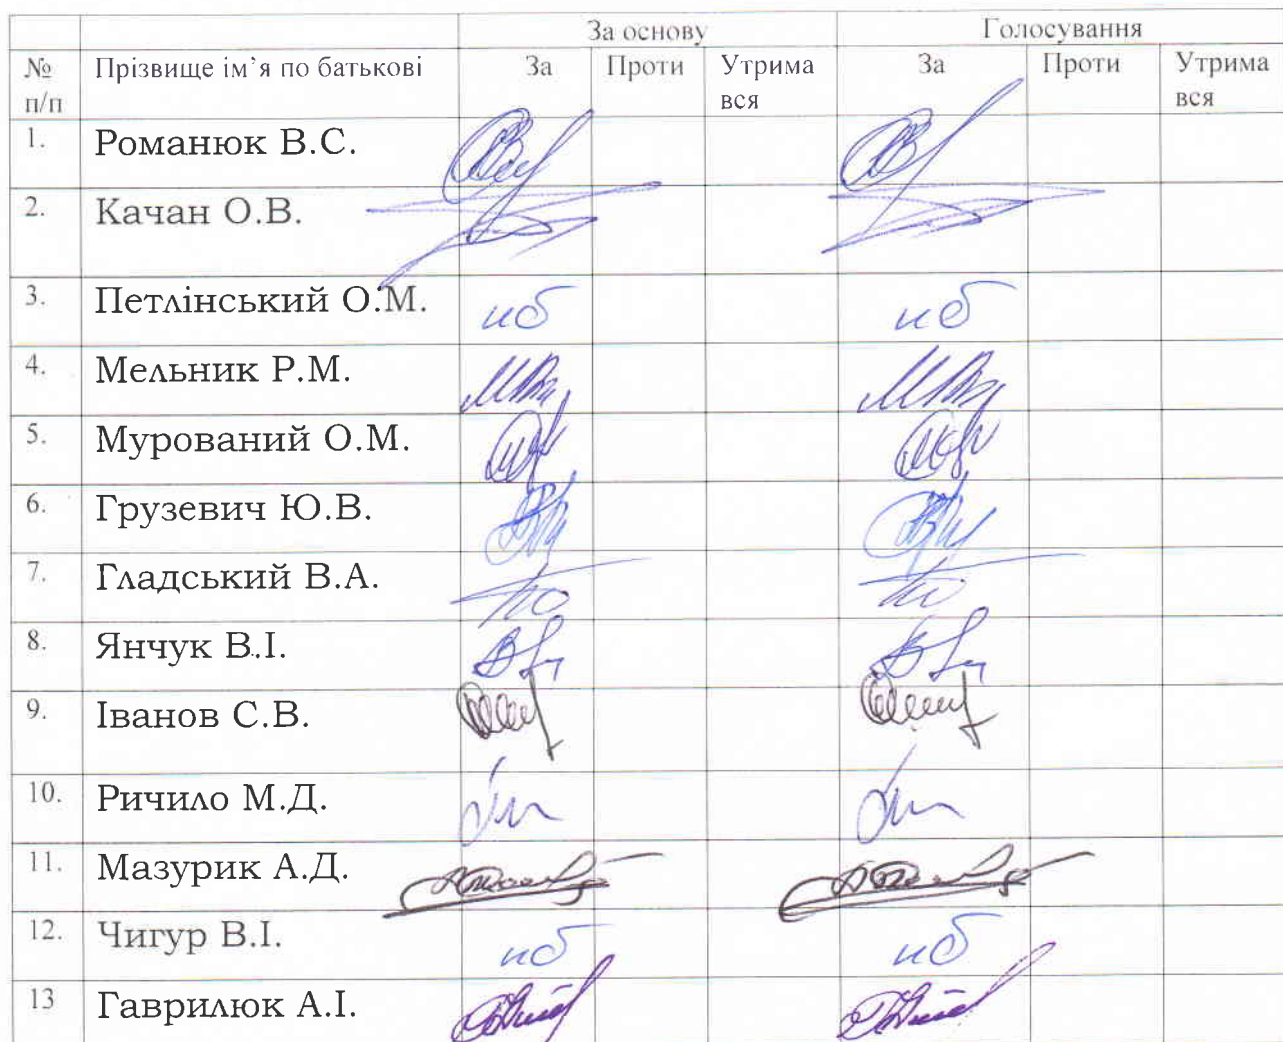 За основу Голосування
№ п/п Прізвище ім’я по батькові За Проти Утримався За Проти Утримався
1. Романюк В.С.
2. Качан О.В.
3. Петлінський О.М. нб нб
4. Мельник Р.М.
5. Мурований О.М.
6. Грузевич Ю.В.
7. Гладський В.А.
8. Янчук В.І.
9. Іванов С.В.
10. Ричило М.Д.
11. Мазурик А.Д.
12. Чигур В.І. нб нб
13 Гаврилюк А.І.